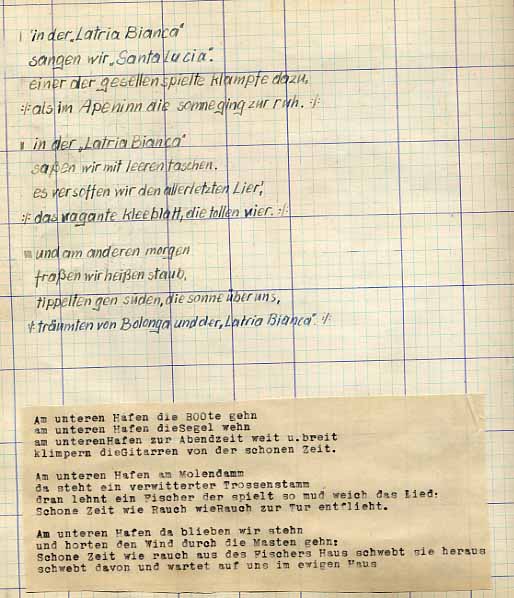 I in der „Latria Bianca"
sangen wir „Santa Lucia".
einer der gesellen spielte klampfe dazu,
:/: als im Apeninn die sonne ging zur ruh. :/:
II in der „Latria Bianca"
saßen wir mit leeren taschen.
es versoffen wir den allerletzten Lier',
:/: das vagante kleeblatt, die tollen vier. :/:
III und am anderen morgen
fraßen wir heißen staub,
tippelten gen süden, die sonne über uns,
:/: träumten von Bolonga und der „Latria Bianca". :/:
Am unteren Hafen die BOOte gehn
am unteren Hafen dieSegel wehn
am unterenHafen zur Abendzeit weit u.breit
klimpern dieGitarren von der schonen Zeit.
Am unteren Hafen am Molendamm
da steht ein verwitterter Trossenstamm
dran lehnt ein Fischer der spielt so mud weich das Lied:
Schone Zeit wie Rauch wieRauch zur Tur entflieht.
Am unteren Hafen da blieben wir stehn
und horten den Wind durch die Masten gehn:
Schone Zeit wie rauch aus des Fischers Haus schwebt sie heraus
schwebt davon und wartet auf uns im ewigen Haus